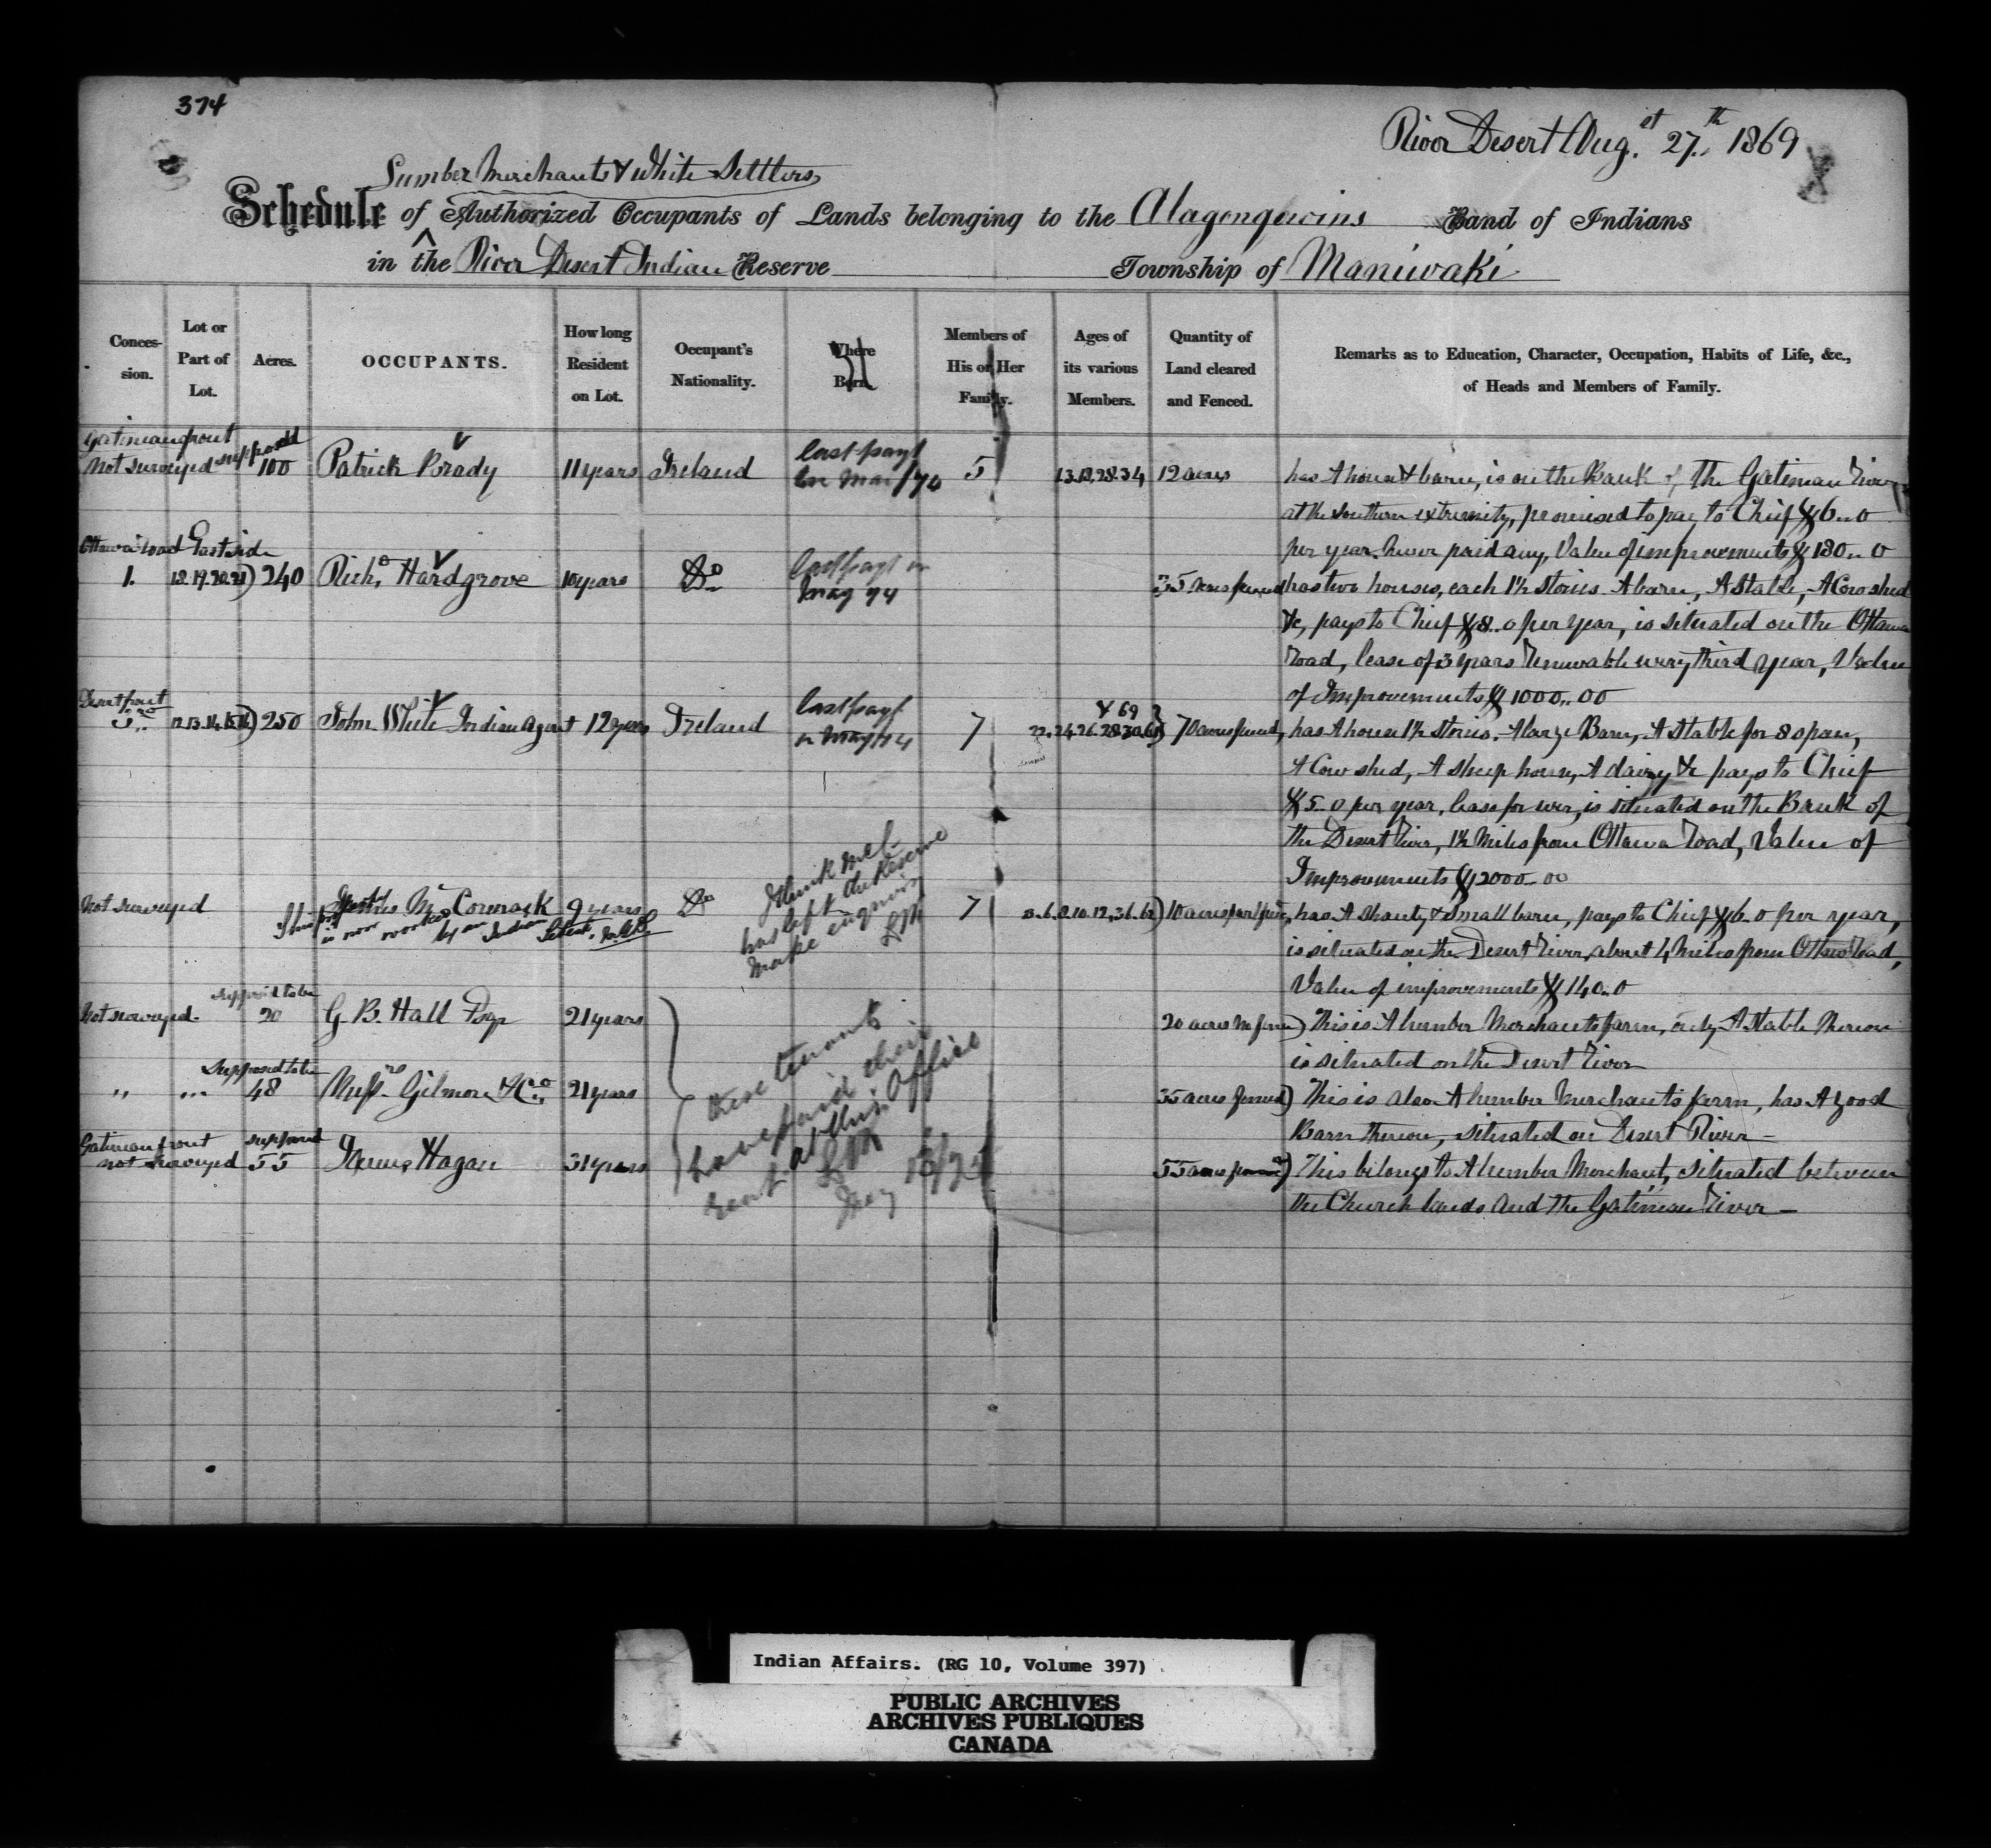 374
River Desert Aug.st 27th 1869
Lumber Merchants & White Settlers
Schedule of Authorized Occupants of Lands belonging to the Alagonquins Band of Indians
in the River Desert Indian Reserve Township of Maniwaki
Conces-sion. Lot or Part of Lot. Acres. OCCUPANTS. How long Resident on Lot. Occupant's Nationality. Where Born. Members of His or Her Family. Ages of its various Members. Quantity of Land cleared and Fenced. Remarks as to Education, Character, Occupation, Habits of Life, &c., of Heads and Members of Family.
Gatineau front
Not surveyed supposd 100 Patrick Brady 11 years Ireland last payt in Mar/74 5 12 acres has A house & barn, is on the Bank of the Gatineau River
at the southern extremity, promised to pay to Chief $6..0
per year. never paid any, Value of improvements $180..0
Ottawa road East side
1. 18.19.20.21) 240 Richd Hardgrove 10 years Do last payt in May 74 35 acres fenced has two houses, each 1½ stories. A barn, A Stable, A Cow shed
&c, pays to Chief $8..0 per year, is situated on the Ottawa
Road, lease of 3 years renewable every third year, Value
of Improvements $1000..00
Desert front
12.13.14.15.16) 250 John White Indian Agent 12 years Ireland last payt in May/74 7 70 acres fenced, has A house 1½ stories. A large Barn, A Stable for 8 span,
A Cow shed, A sheep house, A dairy &c pays to Chief
$5..0 per year, lease for ever, is situated on the Bank of
the Desert River, 1½ Miles from Ottawa Road, Value of
Improvements $2000..00
Not surveyed James McCormack 9 years Do 7 10 acres part fence, has A Shanty & Small barn, pays to Chief $6..0 per year,
is now worked by an Indian
I think McC has left the Reserve make enquiries
is situated on the Desert River, about 4 miles from Ottawa Road,
Value of improvements $140..0
Not surveyed supposd to be 20 G. B. Hall Esqr 21 years 20 acres This is A lumber Merchants farm, only A Stable thereon
is situated on the Desert River
" " Supposed to be 48 Messrs Gilmore & Co. 21 years 35 acres fenced) This is also A lumber Merchants farm, has A good
Barn thereon, situated on Desert River—
Gatineau front
not surveyed supposed 55 James Hagan 31 years 55 acres) This belongs to A lumber Merchant, situated between
the Church lands and the Gatineau River—
these tenants
have paid their
rent at this Office
Indian Affairs. (RG 10, Volume 397)
PUBLIC ARCHIVES
ARCHIVES PUBLIQUES
CANADA